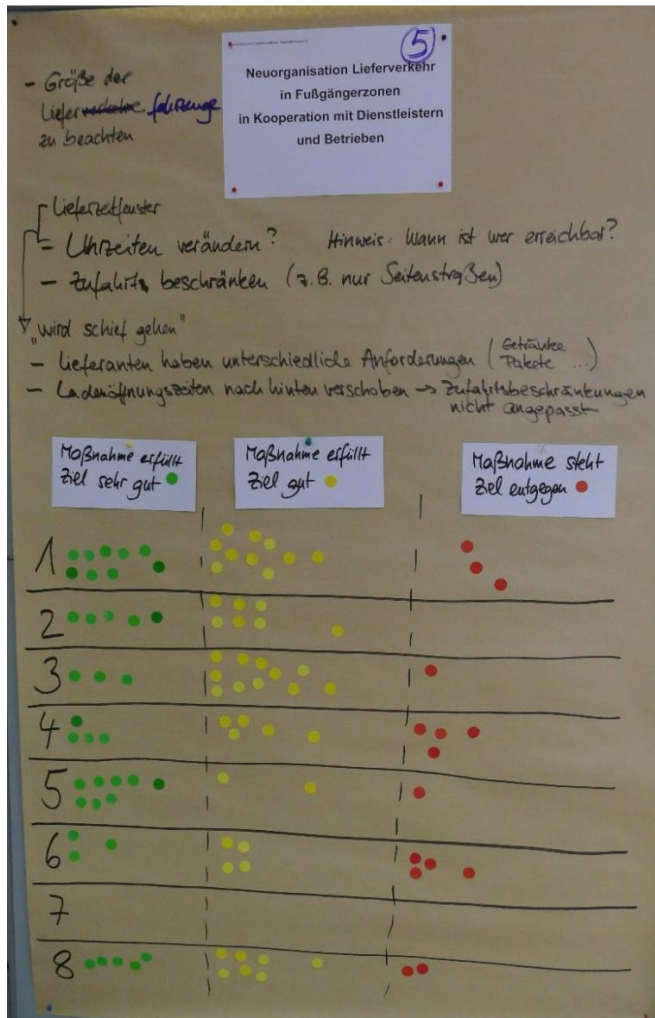 5
Neuorganisation Lieferverkehr
in Fußgängerzonen
in Kooperation mit Dienstleistern
und Betrieben
- Größe der
Lieferverkehre fahrzeuge
zu beachten
Lieferzeitfenster
- Uhrzeiten verändern? Hinweis: Wann ist wer erreichbar?
- Zufahrt beschränken (z.B. nur Seitenstraßen)
"wird schief gehen"
- Lieferanten haben unterschiedliche Anforderungen (Getränke
Pakete ...)
- Ladenöffnungszeiten nach hinten verschoben → Zufahrtsbeschränkungen
nicht angepasst
Maßnahme erfüllt
Ziel sehr gut
Maßnahme erfüllt
Ziel gut
Maßnahme steht
Ziel entgegen
1
2
3
4
5
6
7
8